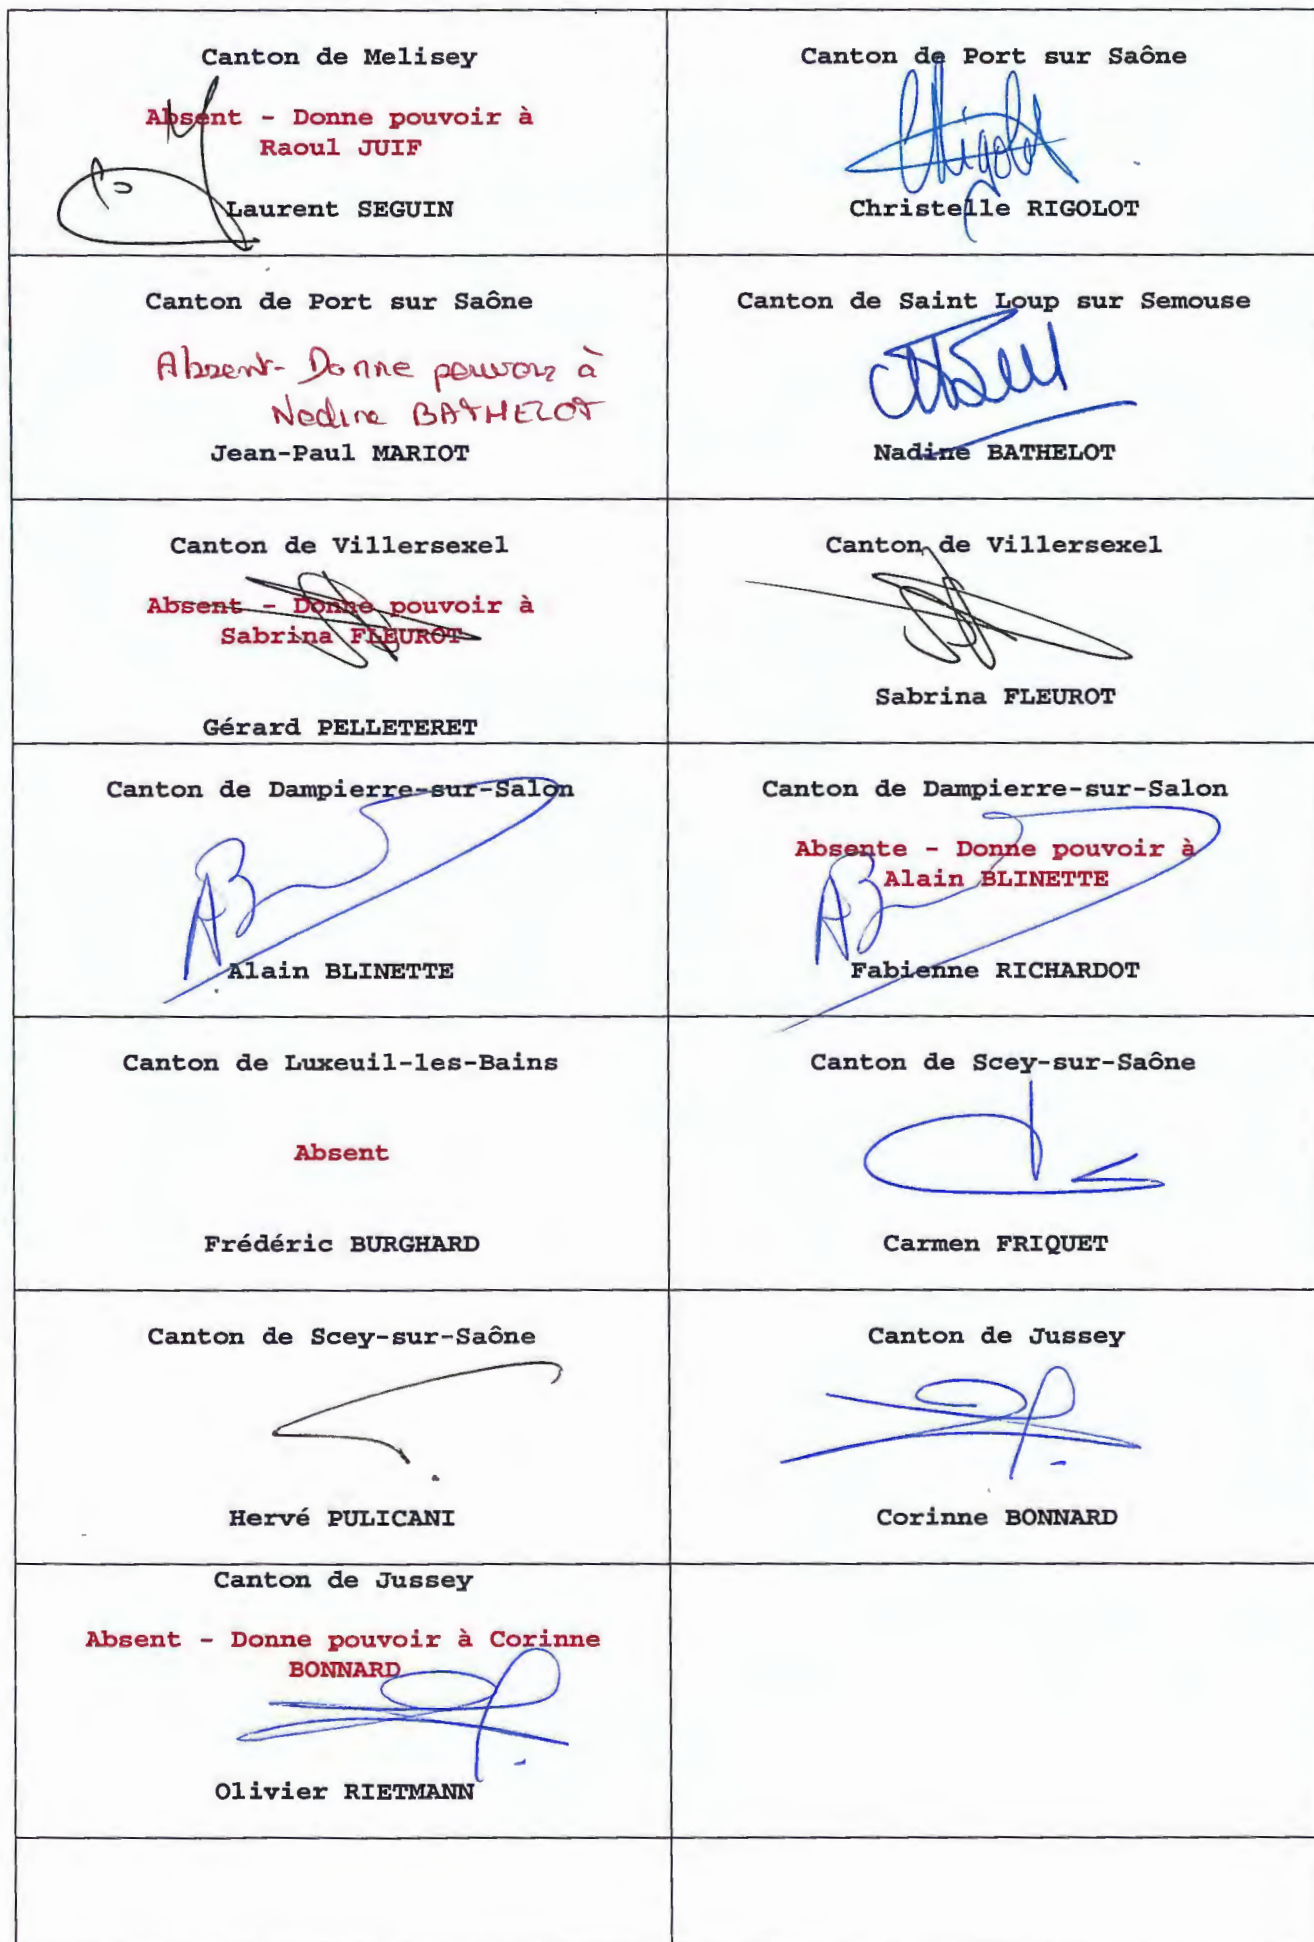 Canton de Melisey
Absent - Donne pouvoir à
Raoul JUIF
Laurent SEGUIN
Canton de Port sur Saône
Christelle RIGOLOT
Canton de Port sur Saône
Absent- Donne pouvoir à
Nadine BATHELOT
Jean-Paul MARIOT
Canton de Saint Loup sur Semouse
Nadine BATHELOT
Canton de Villersexel
Absent - Donne pouvoir à
Sabrina FLEUROT
Gérard PELLETERET
Canton de Villersexel
Sabrina FLEUROT
Canton de Dampierre-sur-Salon
Alain BLINETTE
Canton de Dampierre-sur-Salon
Absente - Donne pouvoir à
Alain BLINETTE
Fabienne RICHARDOT
Canton de Luxeuil-les-Bains
Absent
Frédéric BURGHARD
Canton de Scey-sur-Saône
Carmen FRIQUET
Canton de Scey-sur-Saône
Hervé PULICANI
Canton de Jussey
Corinne BONNARD
Canton de Jussey
Absent - Donne pouvoir à Corinne
BONNARD
Olivier RIETMANN